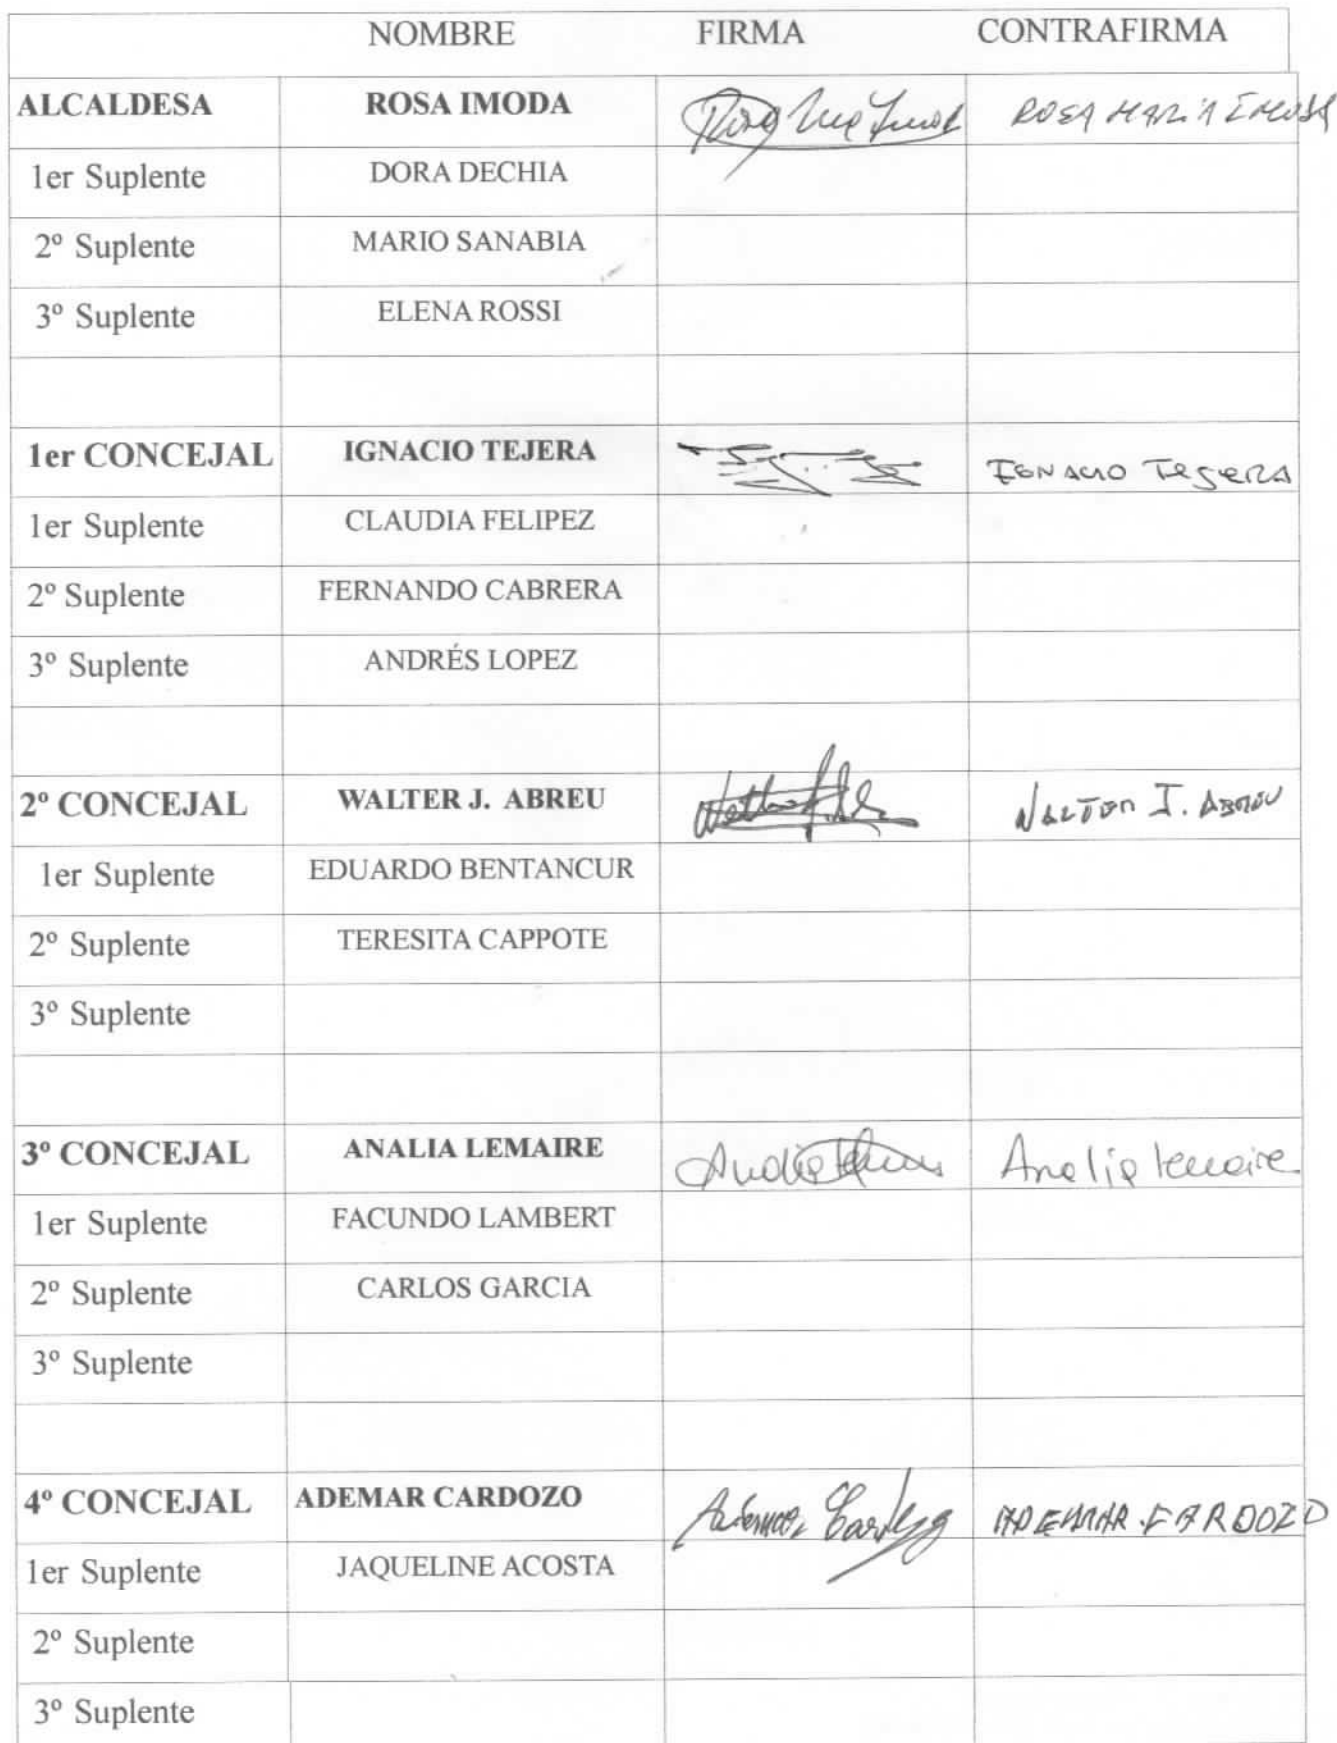 NOMBRE FIRMA CONTRAFIRMA
ALCALDESA ROSA IMODA ROSA MARIA IMODA
1er Suplente DORA DECHIA
2º Suplente MARIO SANABIA
3º Suplente ELENA ROSSI
1er CONCEJAL IGNACIO TEJERA IGNACIO TEJERA
1er Suplente CLAUDIA FELIPEZ
2º Suplente FERNANDO CABRERA
3º Suplente ANDRÉS LOPEZ
2º CONCEJAL WALTER J. ABREU WALTER J. ABREU
1er Suplente EDUARDO BENTANCUR
2º Suplente TERESITA CAPPOTE
3º Suplente
3º CONCEJAL ANALIA LEMAIRE Analia Lemaire
1er Suplente FACUNDO LAMBERT
2º Suplente CARLOS GARCIA
3º Suplente
4º CONCEJAL ADEMAR CARDOZO Ademar Cardozo ADEMAR CARDOZO
1er Suplente JAQUELINE ACOSTA
2º Suplente
3º Suplente